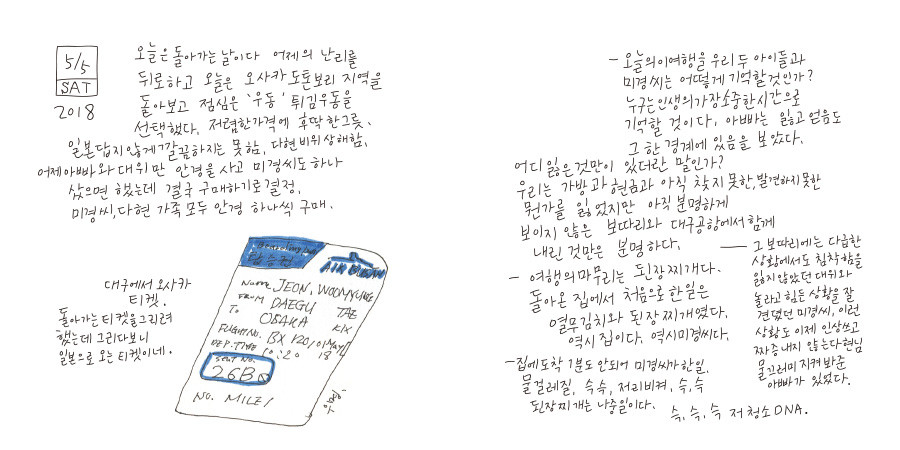 5/5
SAT
2018
오늘은 돌아가는 날이다 어제의 난리를
뒤로하고 오늘은 오사카 도톤보리 지역을
돌아보고 점심은 '우동' 튀김우동을
선택했다. 저렴한가격에 후딱 한그릇.
일본답지 않게 깔끔하지는 못함. 다현 비위상해함.
어제 아빠와 대위만 안경을 사고 미경씨도 하나
샀으면 했는데 결국 구매하기로 결정.
미경씨, 다현 가족 모두 안경 하나씩 구매.
대구에서 오사카
티켓.
돌아가는 티켓을 그리려
했는데 그리다보니
일본으로 오는 티켓이네.
Boarding
탑승권
AIR BUSAN
Name JEON, WOONYUNG
FROM DAEGU TAE
TO OSAKA KIX
FLIGHT NO. BX 120/01MAY/18
DEP. TIME 10:20
SEAT NO.
26B
NO. MILE/
- 오늘의 이여행을 우리 두 아이들과
미경씨는 어떻게 기억할것인가?
누구는 인생의 가장 소중한 시간으로
기억할 것이다, 아빠는 잃고 얻음도
그 한 경계에 있음을 보았다.
어디 잃은것만이 있더란 말인가?
우리는 가방과 현금과 아직 찾지 못한, 발견하지 못한
뭔가를 잃었지만 아직 분명하게
보이지 않은 보따리와 대구공항에서 함께
내린 것만은 분명하다.
— 그 보따리에는 다급한
상황에서도 침착함을
잃지 않았던 대위와
놀라고 힘든 상황을 잘
견뎠던 미경씨, 이런
상황도 이제 인상쓰고
짜증내지 않는 다현님
물끄러미 지켜봐준
아빠가 있었다.
- 여행의 마무리는 된장찌개다.
돌아온 집에서 처음으로 한일은
열무김치와 된장찌개였다.
역시 집이다. 역시 미경씨다.
- 집에 도착 1분도 안되어 미경씨가 한일.
물걸레질, 슥슥, 저리비켜, 슥,슥
된장찌개는 나중일이다.
슥, 슥, 슥 저 청소 DNA.